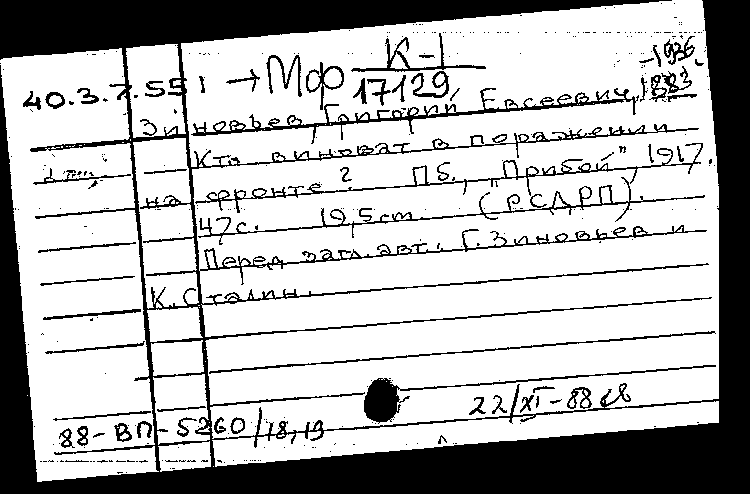 40.3.7.551 → Мф К-1
17129
Зиновьев, Григорий Евсеевич, 1883
-1936.
Кто виноват в поражении
на фронте? Пб., "Прибой", 1917.
47с. 19,5см. (РСДРП).
Перед загл. авт.: Г. Зиновьев и
К. Сталин.
88-ВП-5260/18,19
22/XI-88